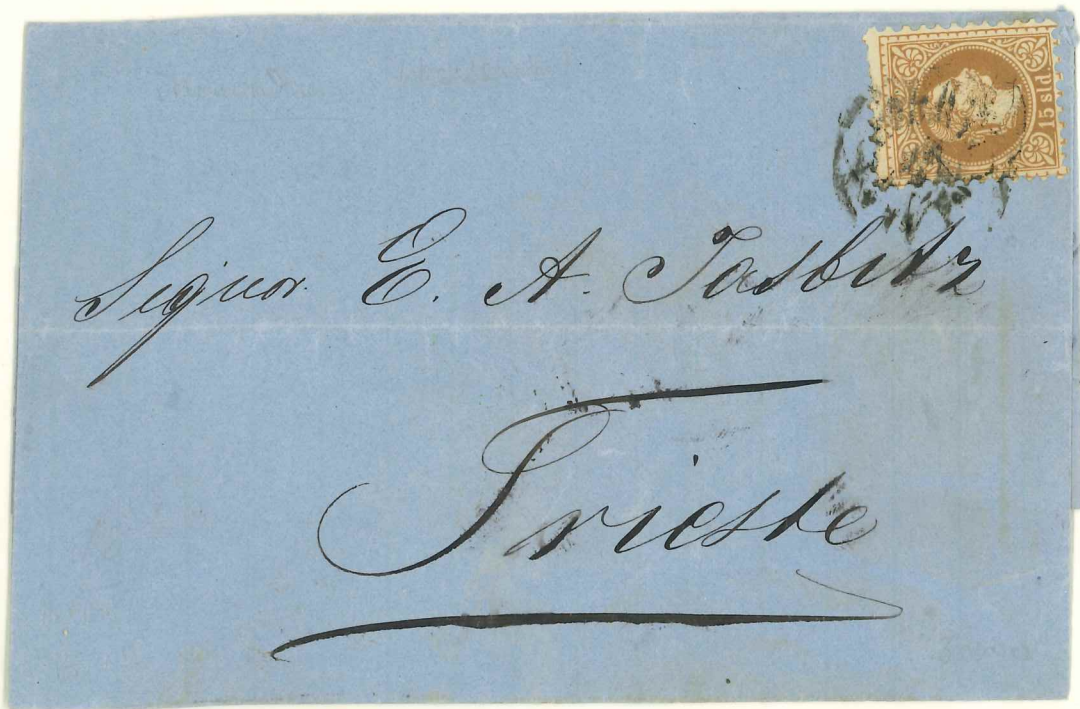 15 sld.
Signor E. A. Tasbitz
Trieste